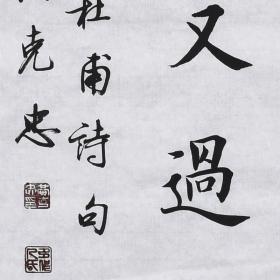 又過
杜甫詩句
克忠